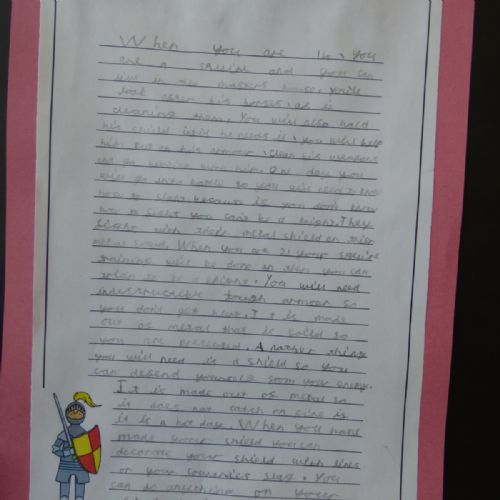 When you are 14, you
are a squire and you can
live in the masters house. you'll
look after his horses, as is
cleaning them. You will also hold
his shield until he needs it, you will help
him put on his armour, clean his weapons
and go hunting with him. One day you
will go into battle so you will need to know
how to fight because if you don't know
how to fight you can't be a knight. They
fight with their metal shield and their
metal sword. When you are 21 your squire
training will be done an then you can
train to be a knight. You will need
indestructible tough armour so
you don't get hurt. It is made
out of metal that is solid so
you are protected. A nother thing
you will need is a shield so you
can defend yourself from your enemy.
It is made out of metal so
it does not catch on fire if
it is a hot day. When you have
made your shield you can
decorate your shield with lines
or your countries flag. You
can do anything on your